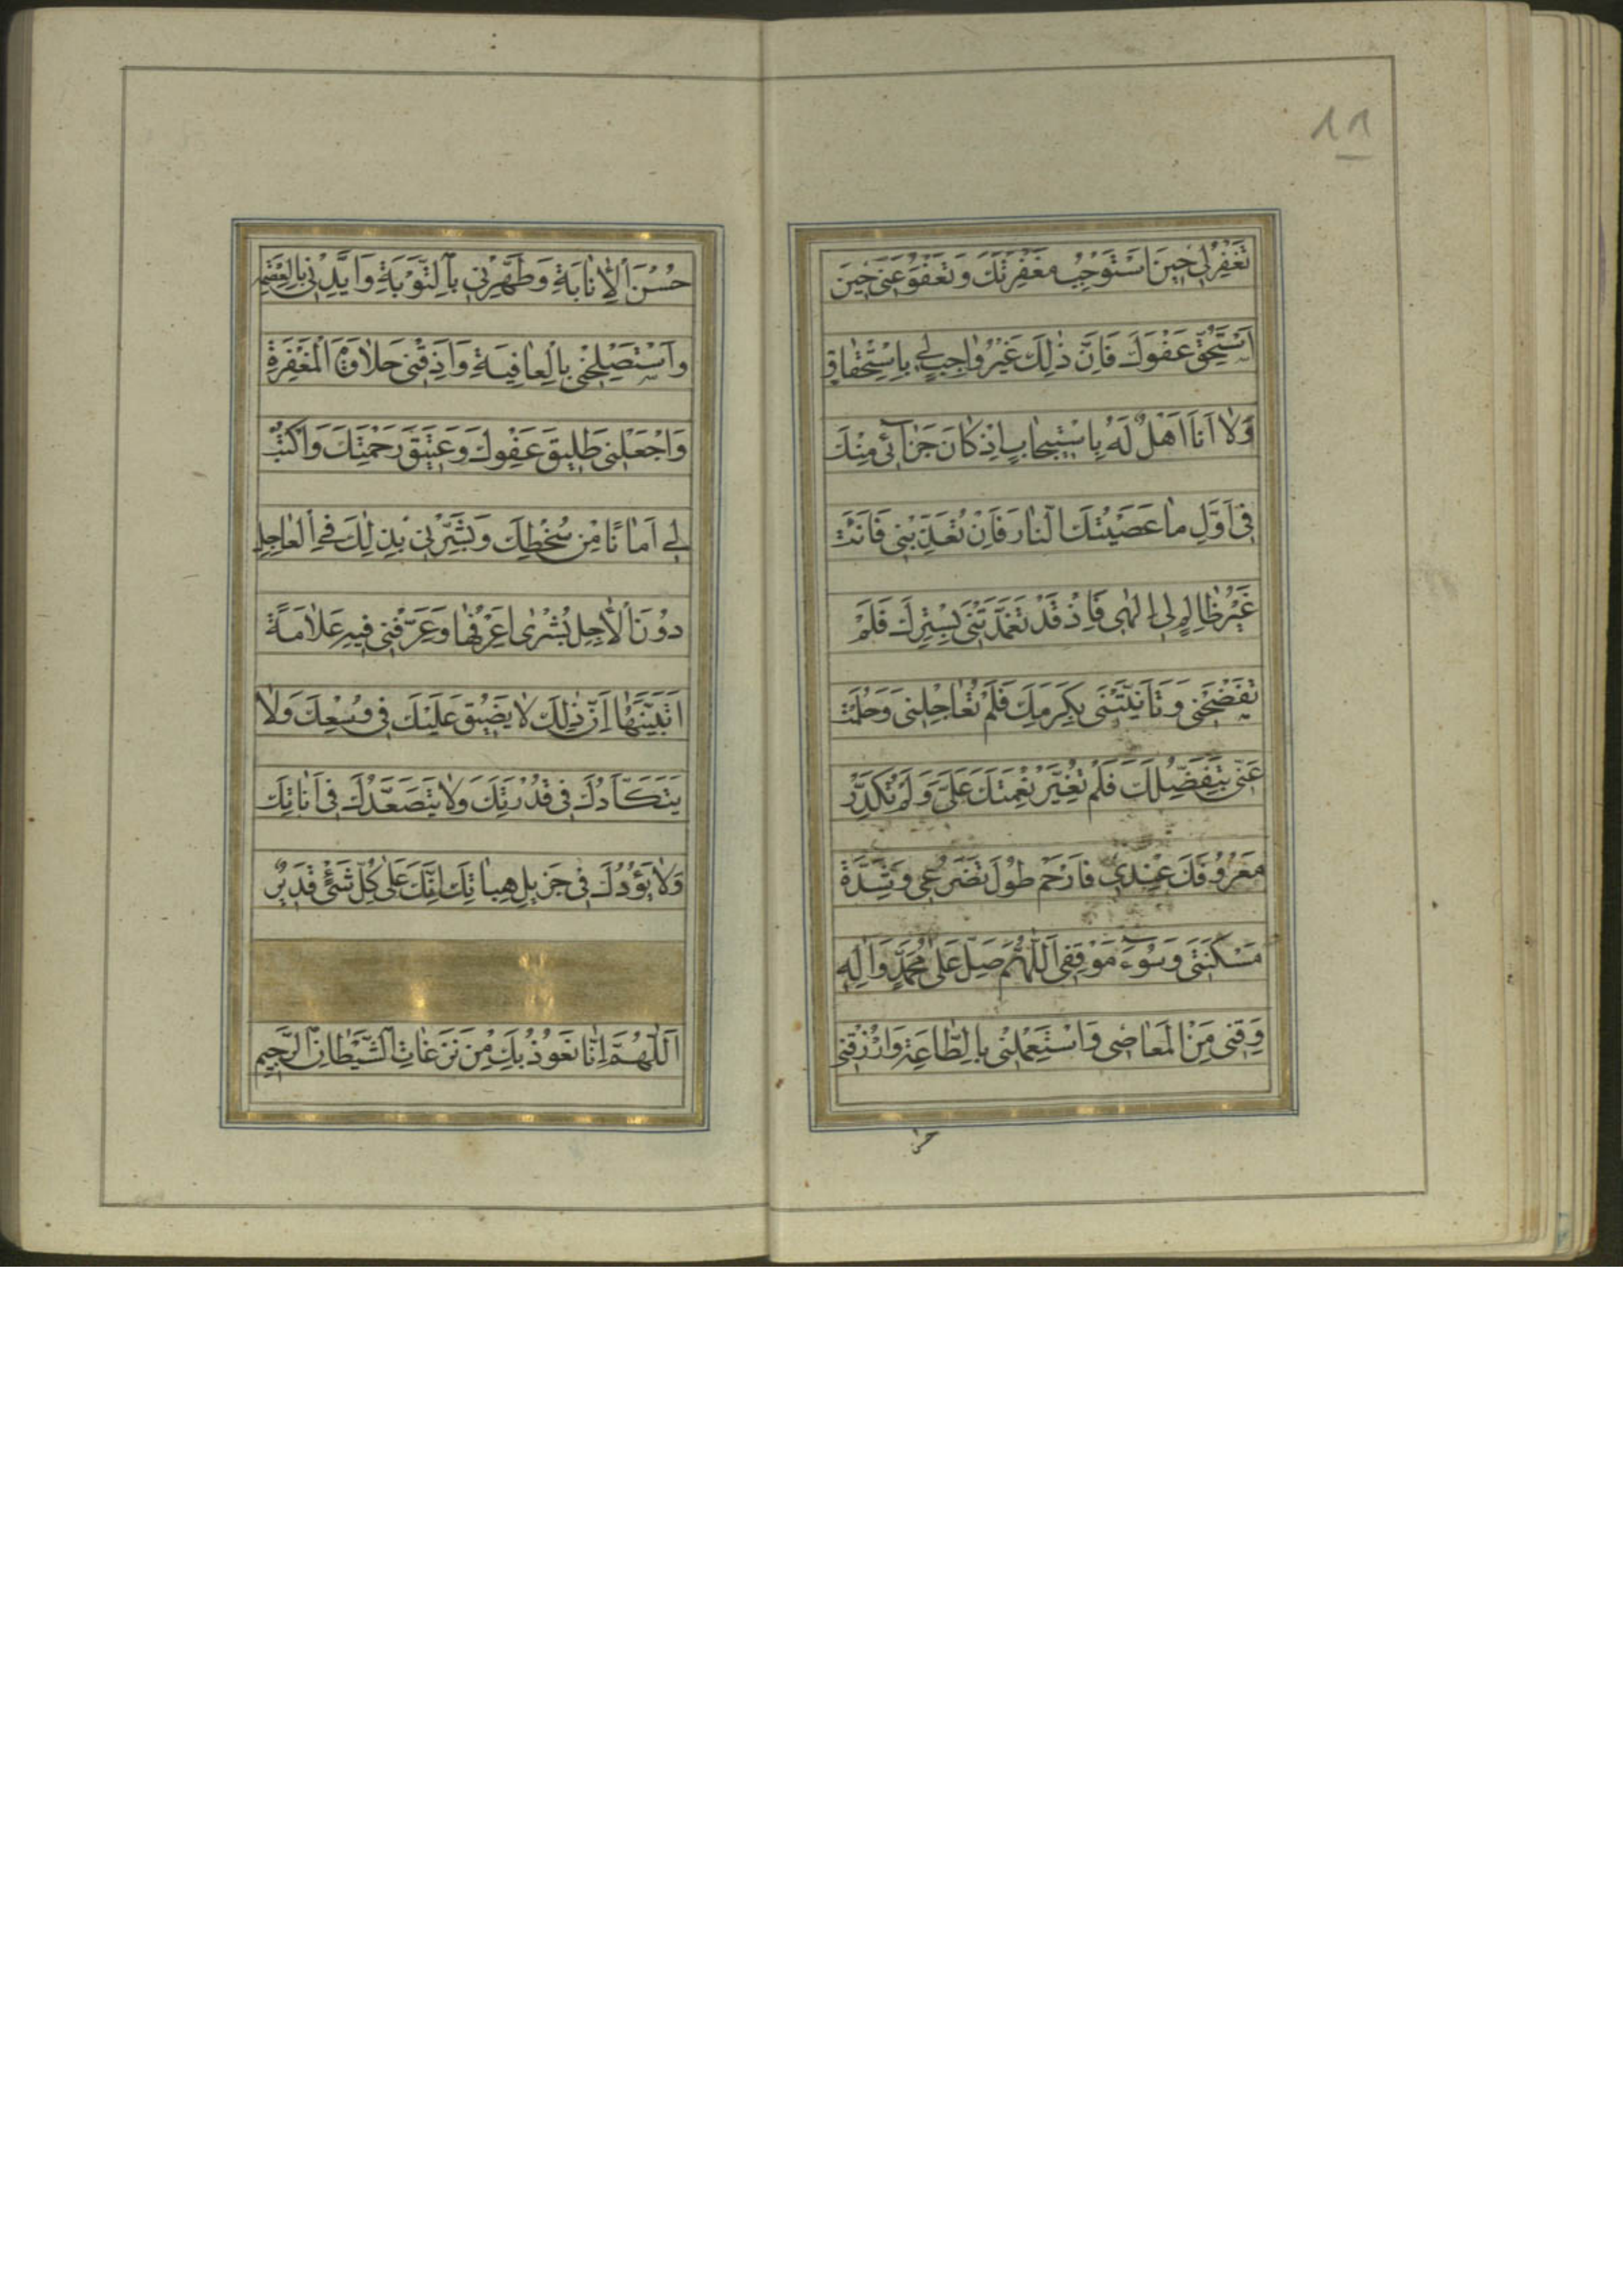 تَغْفِرُ لى حينَ اَسْتَوْجِبُ مَغْفِرَتَكَ وَ تَعْفُوَ عَنّى حينَ
اَسْتَحِقُّ عَفْوَكَ فَاِنَّ ذٰلِكَ غَيْرُ واجِبٍ لى بِاسْتِحْقاقٍ
وَلا اَنَا اَهْلٌ لَهُ بِاسْتيجابٍ اِذْ كانَ جَزآئى مِنْكَ
فى اَوَّلِ ما عَصَيْتُكَ النّارَ فَاِنْ تُعَذِّبْنى فَاَنْتَ
غَيْرُ ظالِمٍ لى اِلٰهى فَاِذْ قَدْ تَغَمَّدْتَنى بِسِتْرِكَ فَلَمْ
تَفْضَحْنى وَ تَاَنَّيْتَنى بِكَرَمِكَ فَلَمْ تُعاجِلْنى وَحَلُمْتَ
عَنّى بِتَفَضُّلِكَ فَلَمْ تُغَيِّرْ نِعْمَتَكَ عَلَىَّ وَلَمْ تُكَدِّرْ
مَعْرُوفَكَ عِنْدى فَارْحَمْ طُولَ تَضَرُّعى وَ شِدَّةَ
مَسْكَنَتى وَ سُوۤءَ مَوْقِفى اَللّٰهُمَّ صَلِّ عَلٰى مُحَمَّدٍ وَ اٰلِهِ
وَ قِنى مِنَ الْمَعاصى وَ اسْتَعْمِلْنى بِالطّاعَةِ وَ ارْزُقْنى
حسن
حُسْنَ الْاِنابَةِ وَ طَهِّرْنى بِالتَّوْبَةِ وَ اَيِّدْنى بِالْعِصْمَةِ
وَ اسْتَصْلِحْنى بِالْعافِيَةِ وَ اَذِقْنى حَلاوَةَ الْمَغْفِرَةِ
وَ اجْعَلْنى طَليقَ عَفْوِكَ وَ عَتيقَ رَحْمَتِكَ وَ اكْتُبْ
لى اَمانًا مِنْ سُخْطِكَ وَ بَشِّرْنى بِذٰلِكَ فى الْعاجِلِ
دُونَ الْاٰجِلِ بُشْرٰى اَعْرِفُها وَ عَرِّفْنى فيهِ عَلامَةً
اَتَبَيَّنُها اِنَّ ذٰلِكَ لا يَضيقُ عَلَيْكَ فى وُسْعِكَ وَلا
يَتَكَاَّدُكَ فى قُدْرَتِكَ وَلا يَتَصَعَّدُكَ فى اَناتِكَ
وَلا يَؤُدُكَ فى جَزيلِ هِباتِكَ اِنَّكَ عَلٰى كُلِّ شَىْءٍ قَديرٌ
اَللّٰهُمَّ اِنّا نَعُوذُ بِكَ مِنْ نَزَغاتِ الشَّيْطانِ الرَّجيمِ